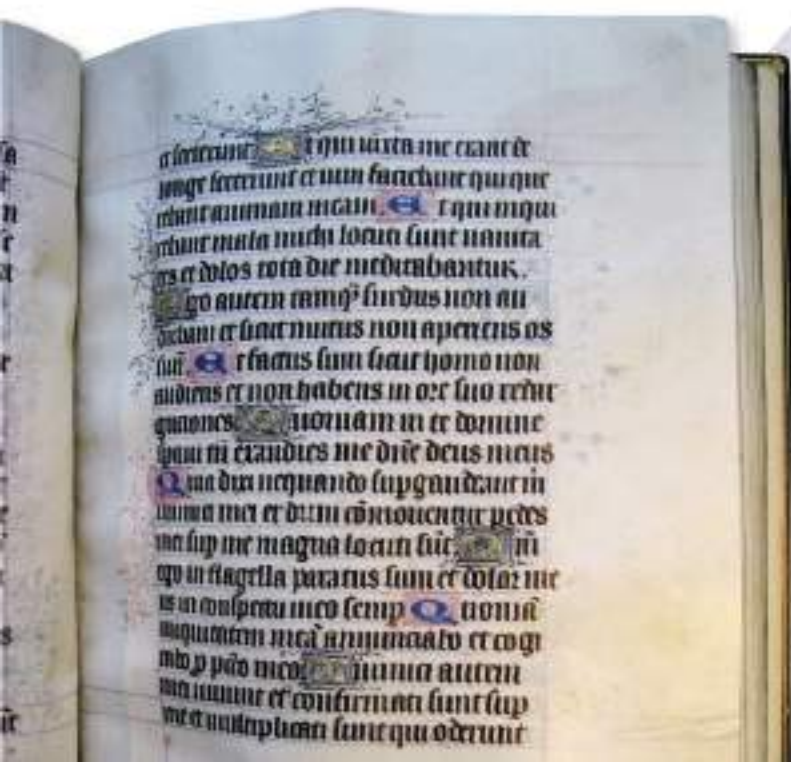 et steterunt Et qui iuxta me erant de
longe steterunt et uim faciebant qui que
rebant animam meam Et qui inqui
rebant mala michi locuti sunt uanita
tes et dolos tota die meditabantur.
Ego autem tamq̄ surdus non au
diebam et sicut mutus non aperiens os
suū. Et factus sum sicut homo non
audiens et non habens in ore suo redar
gutiones Quoniam in te domine
speraui tu exaudies me dn̄e deus meus
Quia dixi nequando supgaudeant m̄
inimici mei et dum cōmouentur pedes
mei sup me magna locuti sūt Qm̄
ego in flagella paratus sum et dolor me
us in conspectu meo semp Quoniā
iniquitatem meā annunciabo et cogi
tabo p pctō meo Inimici autem
mei uiuunt et confirmati sunt sup
me et multiplicati sunt qui oderunt